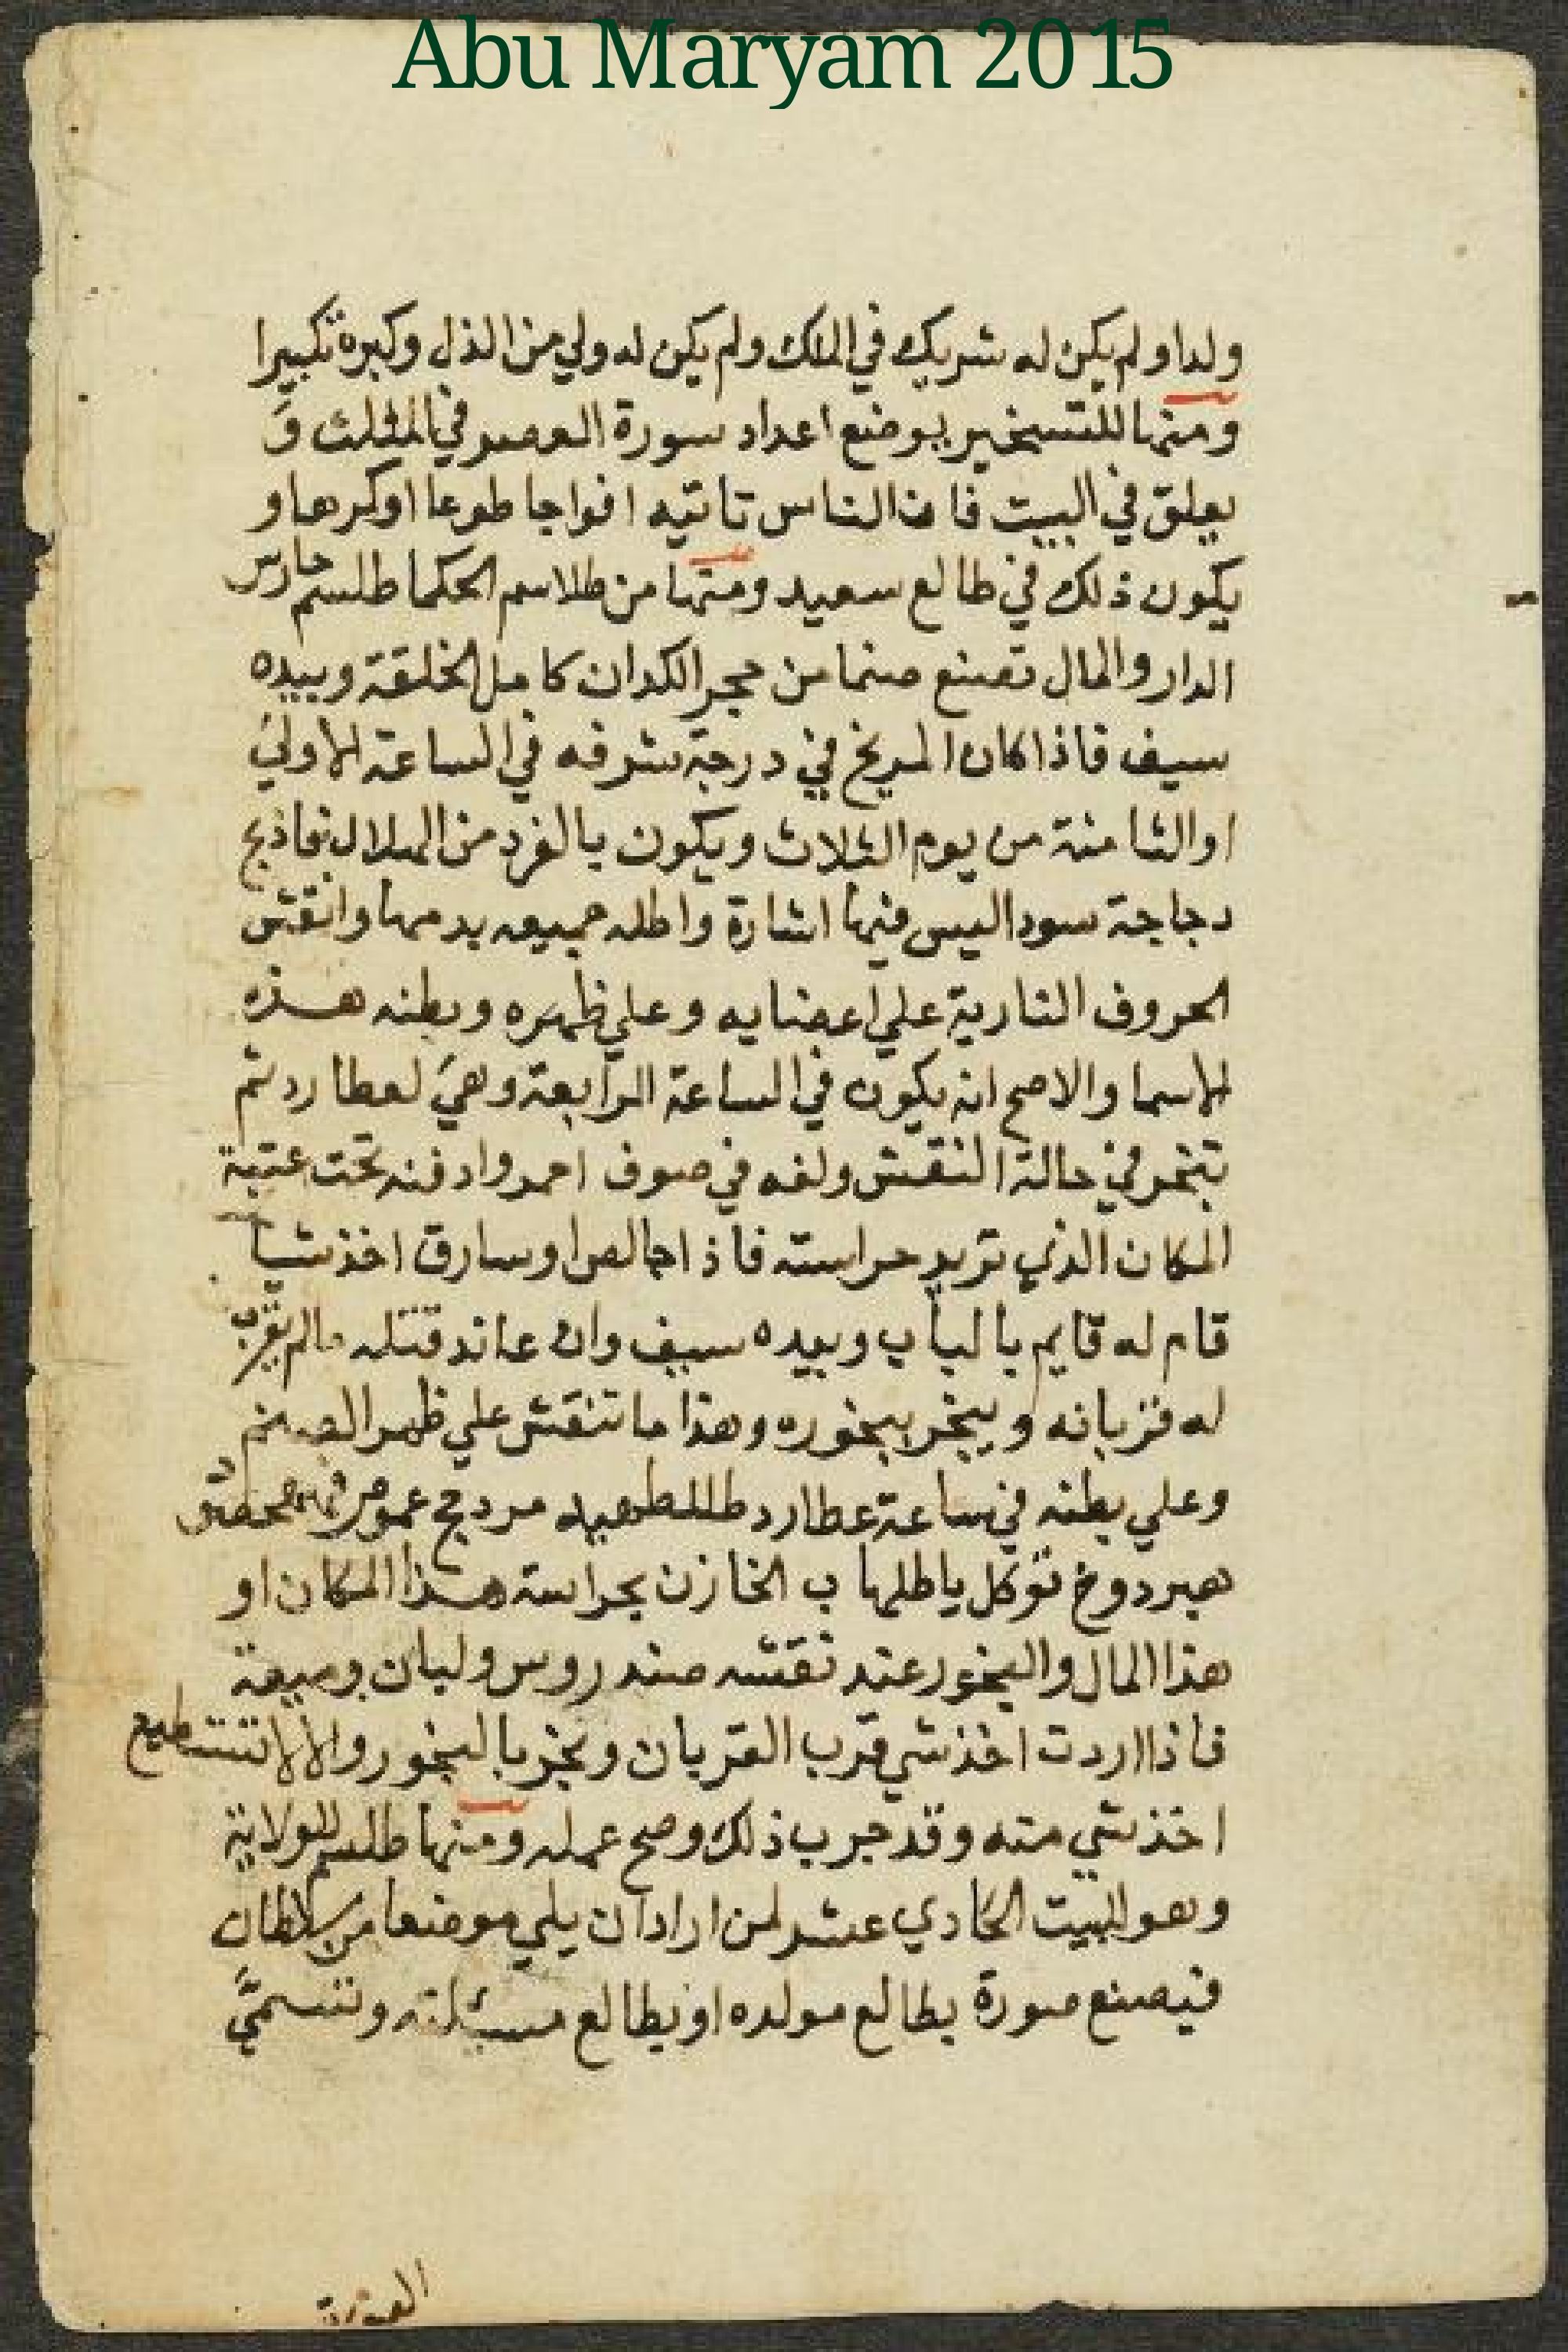 Abu Maryam 2015
ولدا ولم يكن له شريك في الملك ولم يكن له ولي من الذل وكبره تكبيرا
ومنها للتسخير يوضع اعداد سورة العصر في المثلث و
يعلق في البيت فان الناس تاتيه افواجا طوعا اوكرها و
يكون ذلك في طالع سعيد ومنها من طلاسم الحكما طلسم حارس
الدار والمال تصنع صنما من حجر الكدان كامل الخلقة وبيده
سيف فاذا كان المريخ في درجة شرفه في الساعة الاولي
او الثامنة من يوم الثلاث ويكون بالفرد من الهلال فاذبح
دجاجة سودا ليس فيها اشارة واطله جميعه بدمها وانقش
الحروف النارية علي اعضايه وعلي ظهره وبطنه هذه
الاسما والاصح انه يكون في الساعة الرابعة وهي لعطارد ثم
تبخر في حالة النقش ولفه في صوف احمر وادفنه تحت عتبة
المكان الذي تريد حراسته فاذا جا لص او سارق اخذ شيا
قام له قايم بالباب وبيده سيف وان عاند قتله مالم يقرب
له قربانه ويبخر ببخوره وهذا ما تنقش علي ظهر الصنم
وعلي بطنه في ساعة عطارد
توكل يا الخازن بحراسة هذا المكان او
هذا المال والبخور عند نقشه صندروس ولبان وميعة
فاذا اردت اخذ شي قرب القربان وبخر بالبخور والا لا تستطيع
اخذ شي منه وقد جرب ذلك وصح عمله ومنها طلسم للولاية
وهو البيت الحادي عشر لمن اراد ان يلي موضعا من سلطان
فيصنع صورة بطالع مولده او بطالع مسئلته وتسمي
الصورة